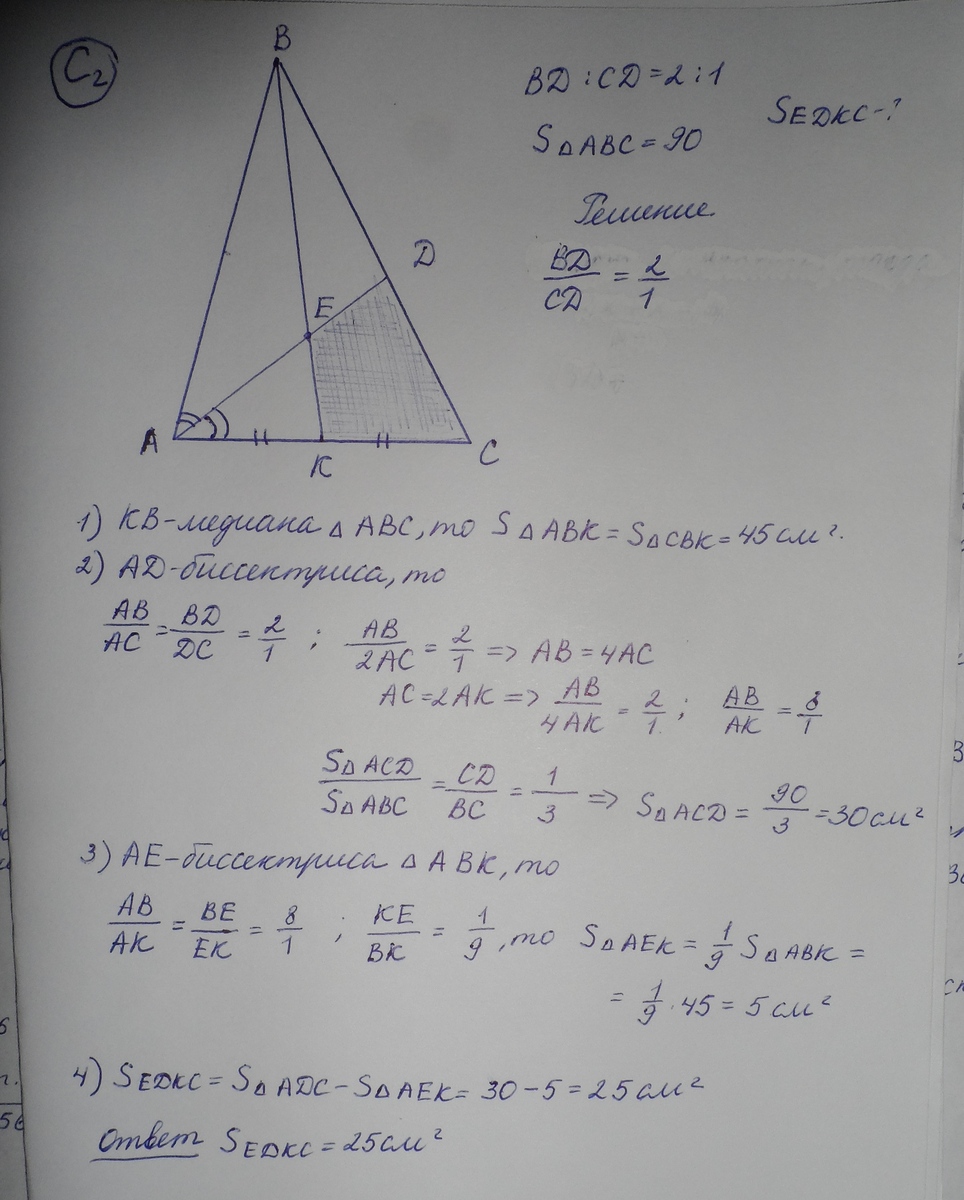 C₂
B
BD : CD = 2 : 1
S △ ABC = 90
SEDKC - ?
Решение.
D
BD/CD = 2/1
E
A
K
C
1) KB-медиана △ ABC, то S △ ABK = S△CBK = 45 см².
2) AD-биссектриса, то
AB/AC = BD/DC = 2/1 ; AB/2AC = 2/1 => AB = 4AC
AC = 2AK => AB/4AK = 2/1 ; AB/AK = 8/1
S△ ACD/S△ ABC = CD/BC = 1/3 => S△ ACD = 90/3 = 30 см²
3) AE-биссектриса △ ABK, то
AB/AK = BE/EK = 8/1 ; KE/BK = 1/9, то S△ AEK = 1/9 S△ ABK =
= 1/9 · 45 = 5 см²
4) SEDKC = S△ ADC - S△ AEK = 30 - 5 = 25 см²
Ответ SEDKC = 25 см²